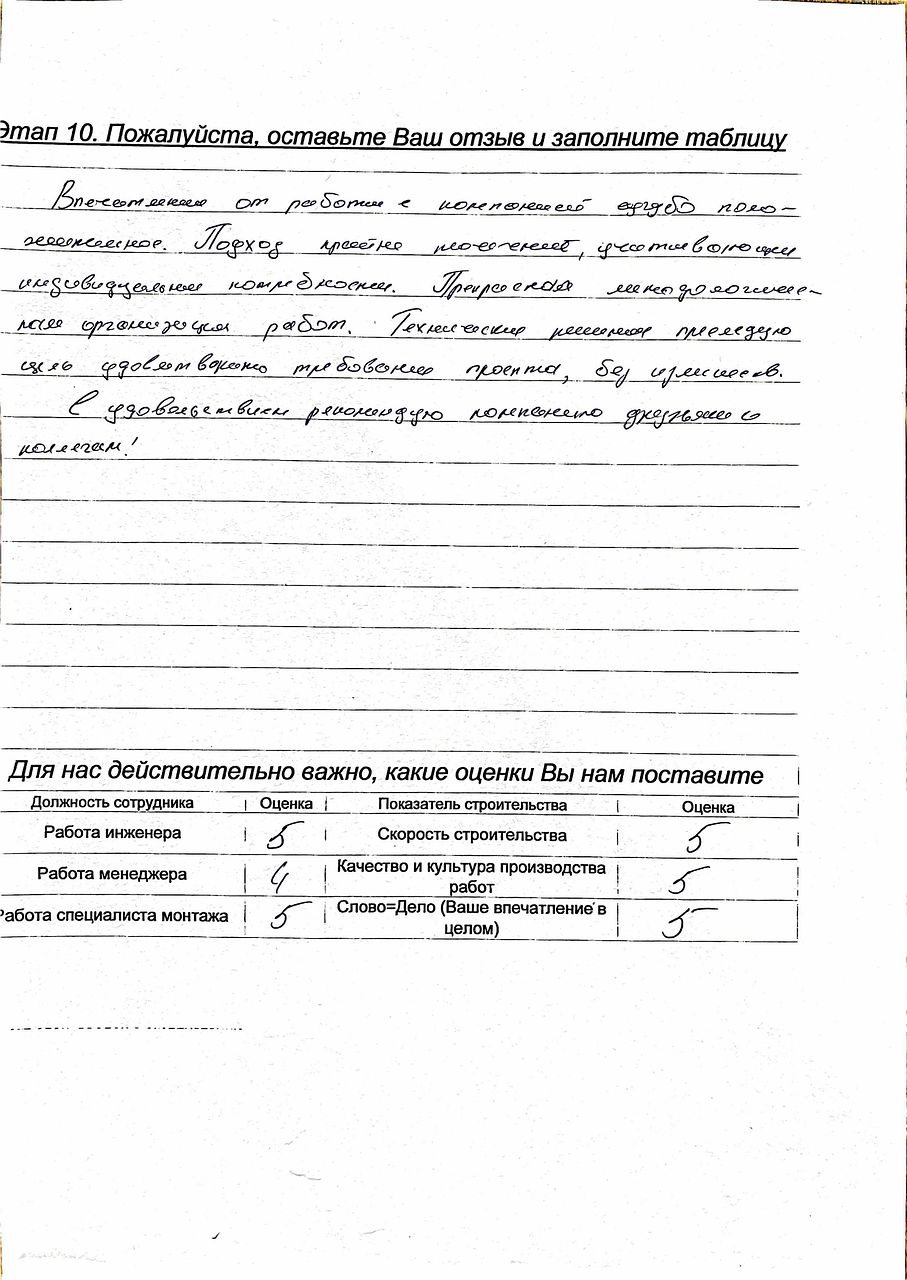 Этап 10. Пожалуйста, оставьте Ваш отзыв и заполните таблицу
Впечатления от работы с компанией сугубо поло-
жительное. Подход крайне рачтельный, учитывающий
индивидуальные потребности. Прекрасная методологичес-
кая организация работ. Технические решения преследую
цель удовлетворить требования проекта, без излишеств.
С удовольствием рекомендую компанию друзьям и
коллегам!
Для нас действительно важно, какие оценки Вы нам поставите
Должность сотрудника Оценка Показатель строительства Оценка
Работа инженера 5 Скорость строительства 5
Работа менеджера 4 Качество и культура производства работ 5
Работа специалиста монтажа 5 Слово=Дело (Ваше впечатление в целом) 5